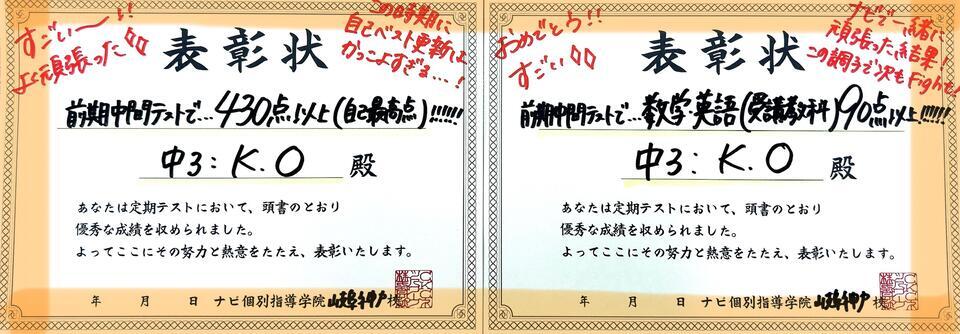 すごい〜!!
よく頑張った
この時期に
自己ベスト更新は
かっこよすぎる…!
表彰状
前期中間テストで…430点以上(自己最高点)!!!!!!
中3: K.O 殿
あなたは定期テストにおいて、頭書のとおり
優秀な成績を収められました。
よってここにその努力と熱意をたたえ、表彰いたします。
年 月 日 ナビ個別指導学院 岐阜神戸校
おめでとう!!
すごい
ナビで一緒に
頑張った結果!
この調子で次もFight!
表彰状
前期中間テストで…数学・英語(受講教科)90点以上!!!!!!
中3: K.O 殿
あなたは定期テストにおいて、頭書のとおり
優秀な成績を収められました。
よってここにその努力と熱意をたたえ、表彰いたします。
年 月 日 ナビ個別指導学院 岐阜神戸校